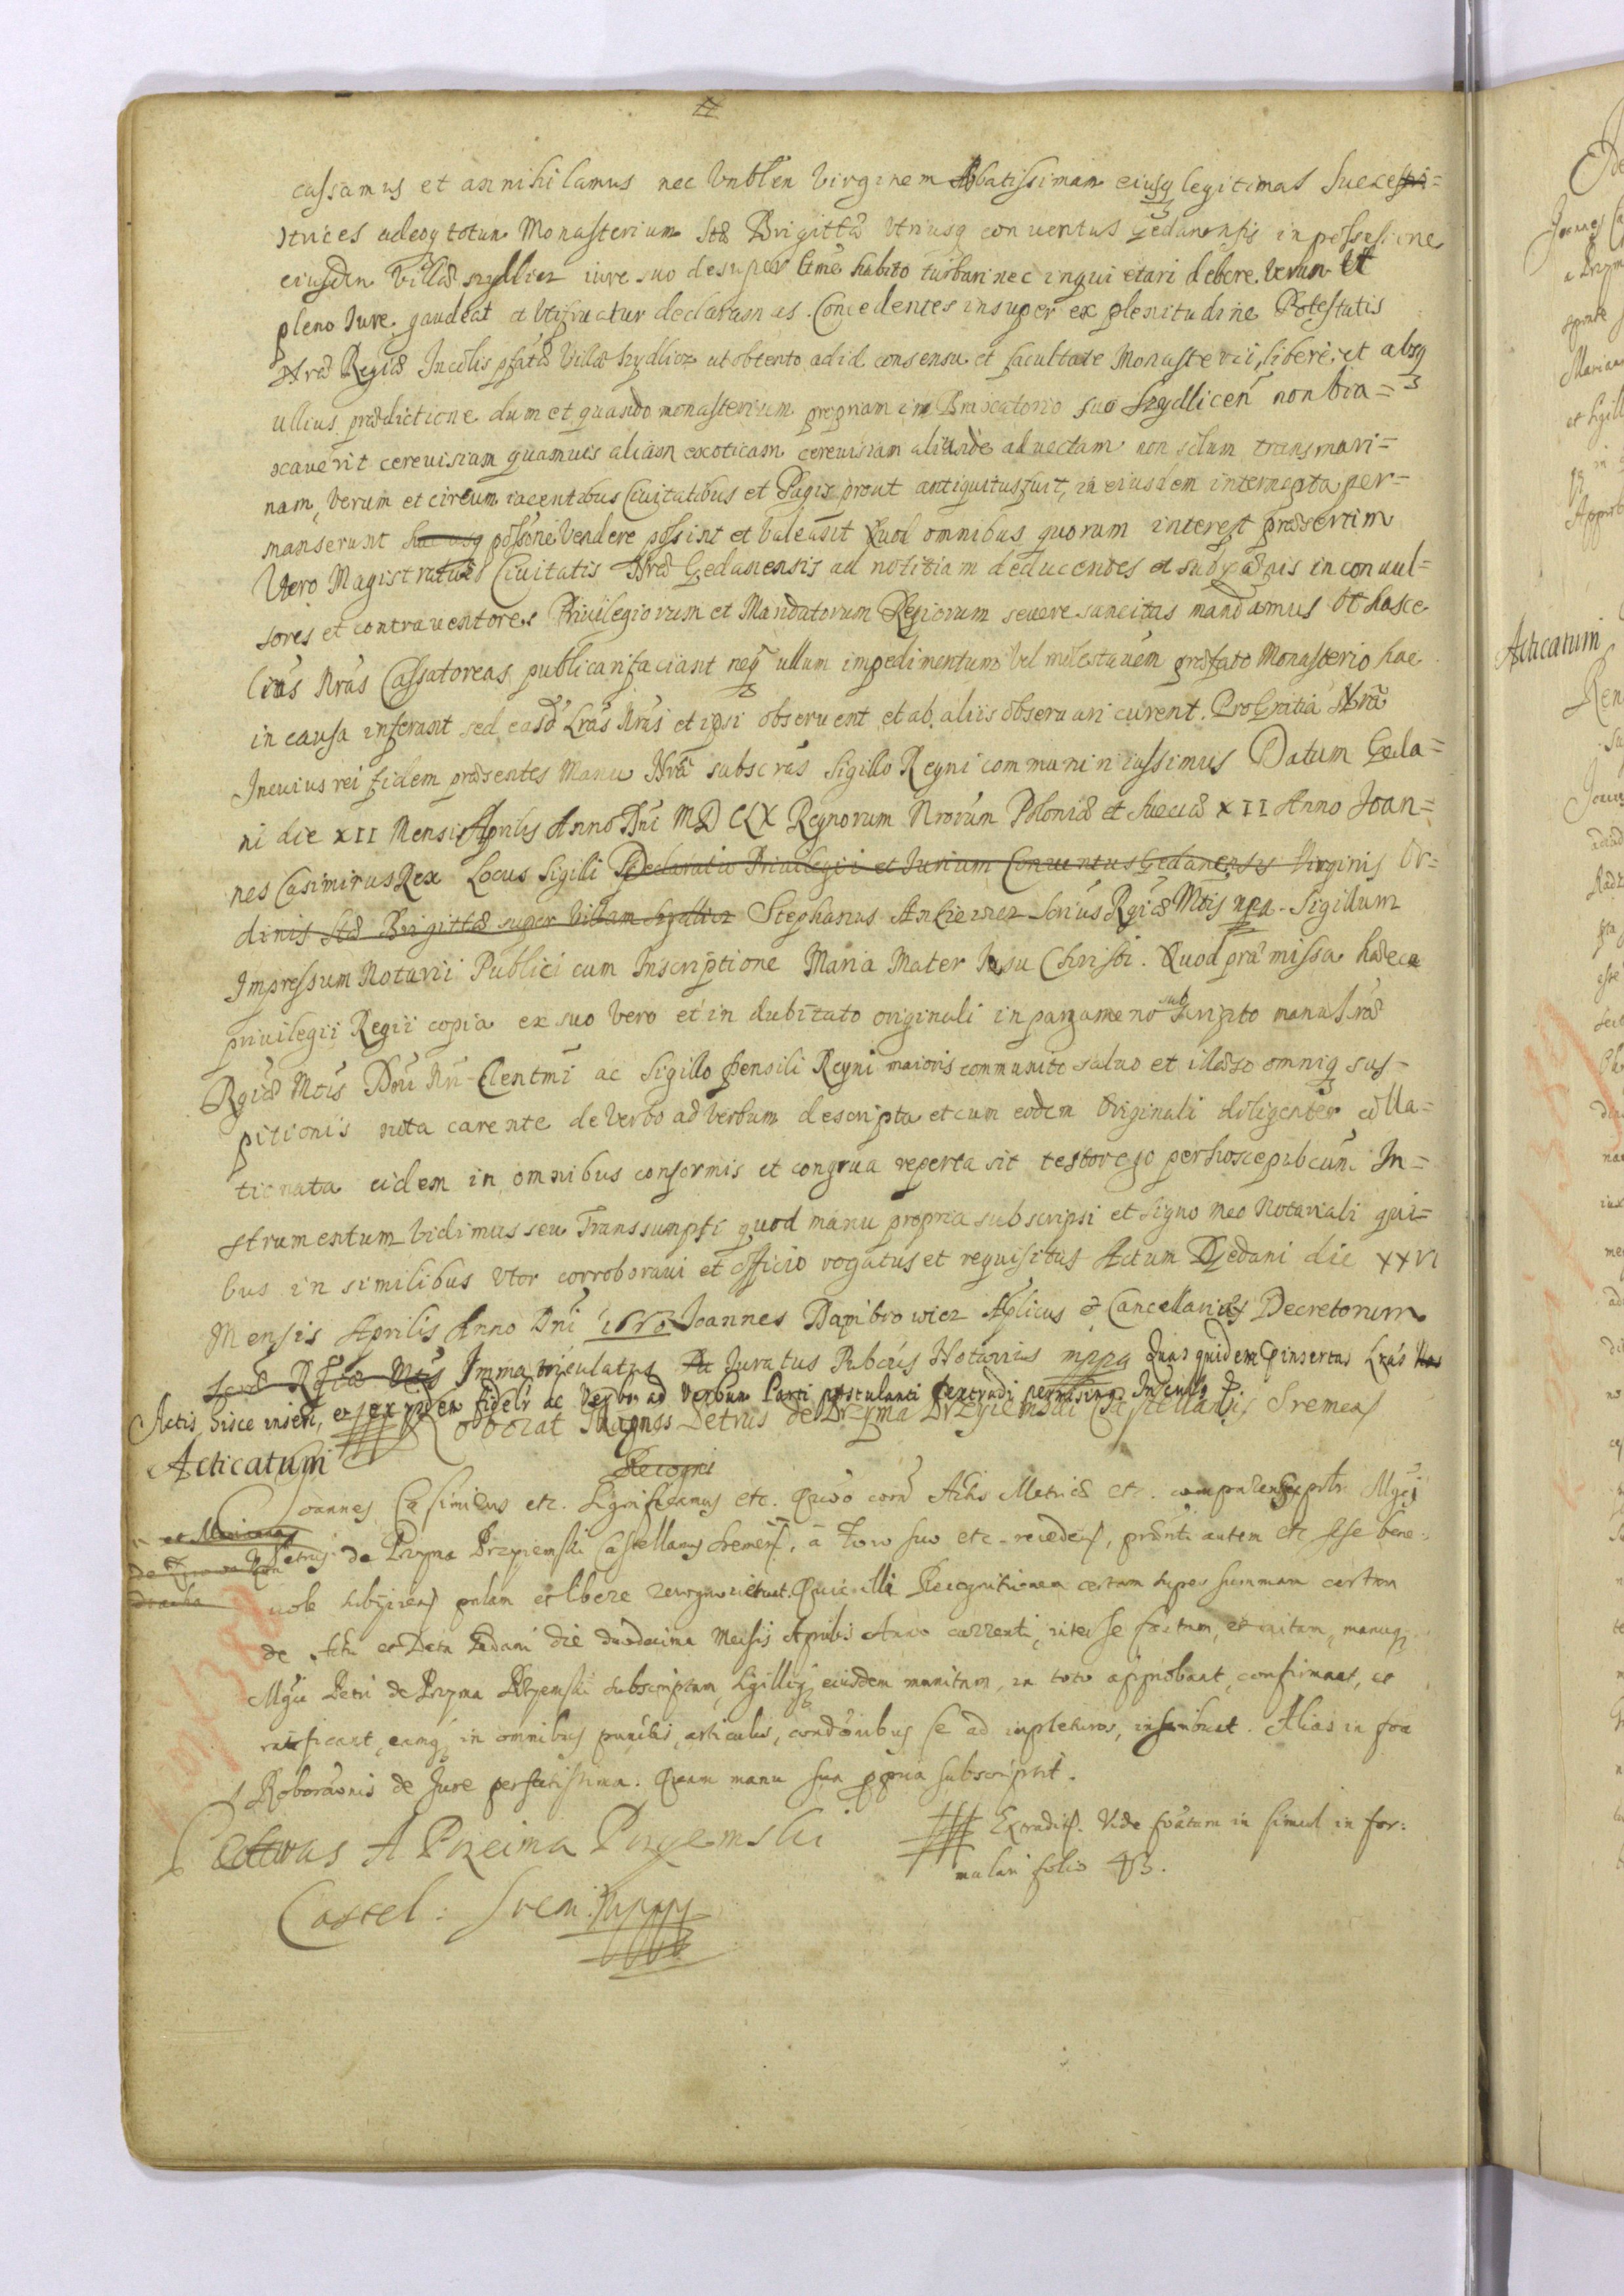 cassamus et annihilamus nec Vnblem Virginem Abbatissimam eiusq legitimas Succes
strices adeoq totum Monasterium Stæ Brigittæ Vtriusq conuentus Gedanensis in possessione
eiusdem Villæ Szydlicz iure suo desuper ltme habito turbari nec inquietari debere. Verum Vt
pleno Iure gaudeat et Vtifruatur declaramus. Concedentes insuper ex plenitudine Potestatis
Nræ Regiæ Incolis pfatæ Villæ Szydlicz ut obtento ad id consensu et facultate Monasterii, libere, et absq
ullius prædictione dum et quando monasterium propriam in Braxatorio suo Szydlicen non bra=
xauerit cereuisiam quamuis aliam exoticam cereuisiam aliunde aduectam non solum transmari=
nam, Verum et circum iacentibus Ciuitatibus et Pagis prout antiquitus fuit, in eiusdem intercepta per=
manserunt hac usq possone Vendere possint et Valeant Quod omnibus quorum interest præsertim
Vero Magistratui Ciuitatis Nræ Gedanensis ad notitiam deducentes et sub pænis in conuul=
sores et contrauentores Priuilegiorum et Mandatorum Regiorum seuere sancitas mandamus Vt hasce
Lras Nras Cassatoreas publicari faciant neq ullum impedimentum Vel molestauem præfato Monasterio hac
in causa inferant sed easd Lras Nras et ipsi obseruent et ab aliis obseruari curent. Pro Gratia Nra
In cuius rei fidem præsentes Manu Nra subscras Sigillo Regni communiri iussimus Datum Geda=
ni die XII Mensis Aprilis Anno Dni MDCLX Regnorum Nrorum Poloniæ et Sueciæ XII Anno Joan=
nes Casimirus Rex Locus Sigilli Declaratio Priuilegii et Iurium Conuentus Gedanensis Virginis Or=
dinis Stæ Brigittæ super Villam Szydlicz Stephanus Ankiewicz Scrius Rgiæ Mtis mpa. Sigillum
Impressum Notarii Publici cum Inscriptione Maria Mater Jesu Christi. Quod præmissa hæcce
priuilegii Regii copia ex suo Vero et in dubitato originali in pargameno subscripto manu Sræ
Rgiæ Mtis Dni Nri Clentmi ac Sigillo pensili Regni maioris communito saluo et illæso omniq sus=
pitionis nota carente de Verbo ad Verbum descripta et cum eodem Originali diligenter colla=
tionata eidem in omnibus conformis et congrua reperta sit testor ego per hosce pubcum In=
strumentum Vidimus seu Transsumpti quod manu propria subscripsi et signo meo Notariali qui=
bus in similibus Vtor corroboraui et officio rogatus et requisitus Actum Gedani die XXVI
Mensis Aprilis Anno Dni Joannes Dambrowicz Aplicus & Cancellariæ Decretorum
Sacræ Rgiæ Mtis Immatriculatus Iuratus Pubcus Notarius mppa Quas quidem insertas Lras Nos
Actis hisce inseri, et ex ijsdem fidelr ac Verbo ad Verbum Parti postulanti extradi permisimus. In cuius &
Roborat Magncus Petrus de Przyma Przyiemski Castellanus Sremen
Acticatum
Recognt
Joannes Casimirus etc. Significamus etc. Quia coram Actis Metrices etc. comparens psltr Mgcus
et Marianna
Petrus de Przyma Przyiemski Castellanus Sremen, a foro suo etc. recedens, prænti autem etc sese bene
uole subijciens palam et libere recognouit. Quia illi Recognitionem certam super summam certam
de Actu et Data Gedani die duodecima Mensis Aprilis Anno currenti, inter se factam, et initam, manuq
Mgci Petri de Przyma Przyemski subscriptam, Sigilloq eiusdem munitam, in toto approbant, confirmant, et
ratificant, eamq in omnibus punctis, articulis, condonibus se ad impleturos, inscribunt. Alias in foa
Roboraonis de Iure perfectissima. Quam manu sua ppria subscripsit.
Petrus A Przeima Przyemski
Castel: Srem: mppp
Extradit. Vide foatam in simul in for:
mulari folio